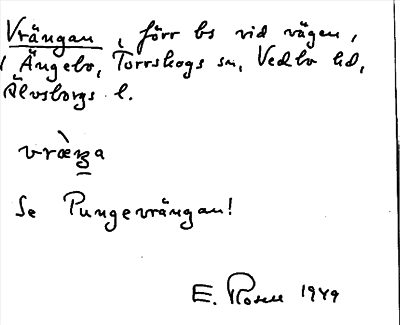 Vrängan, förr bs vid vägen,
i Ängebo, Torrskogs sn, Vedbo hd,
Älvsborgs l.
vrӕ̀ŋa
Se Pungevrängan!
E. Rosell 1949